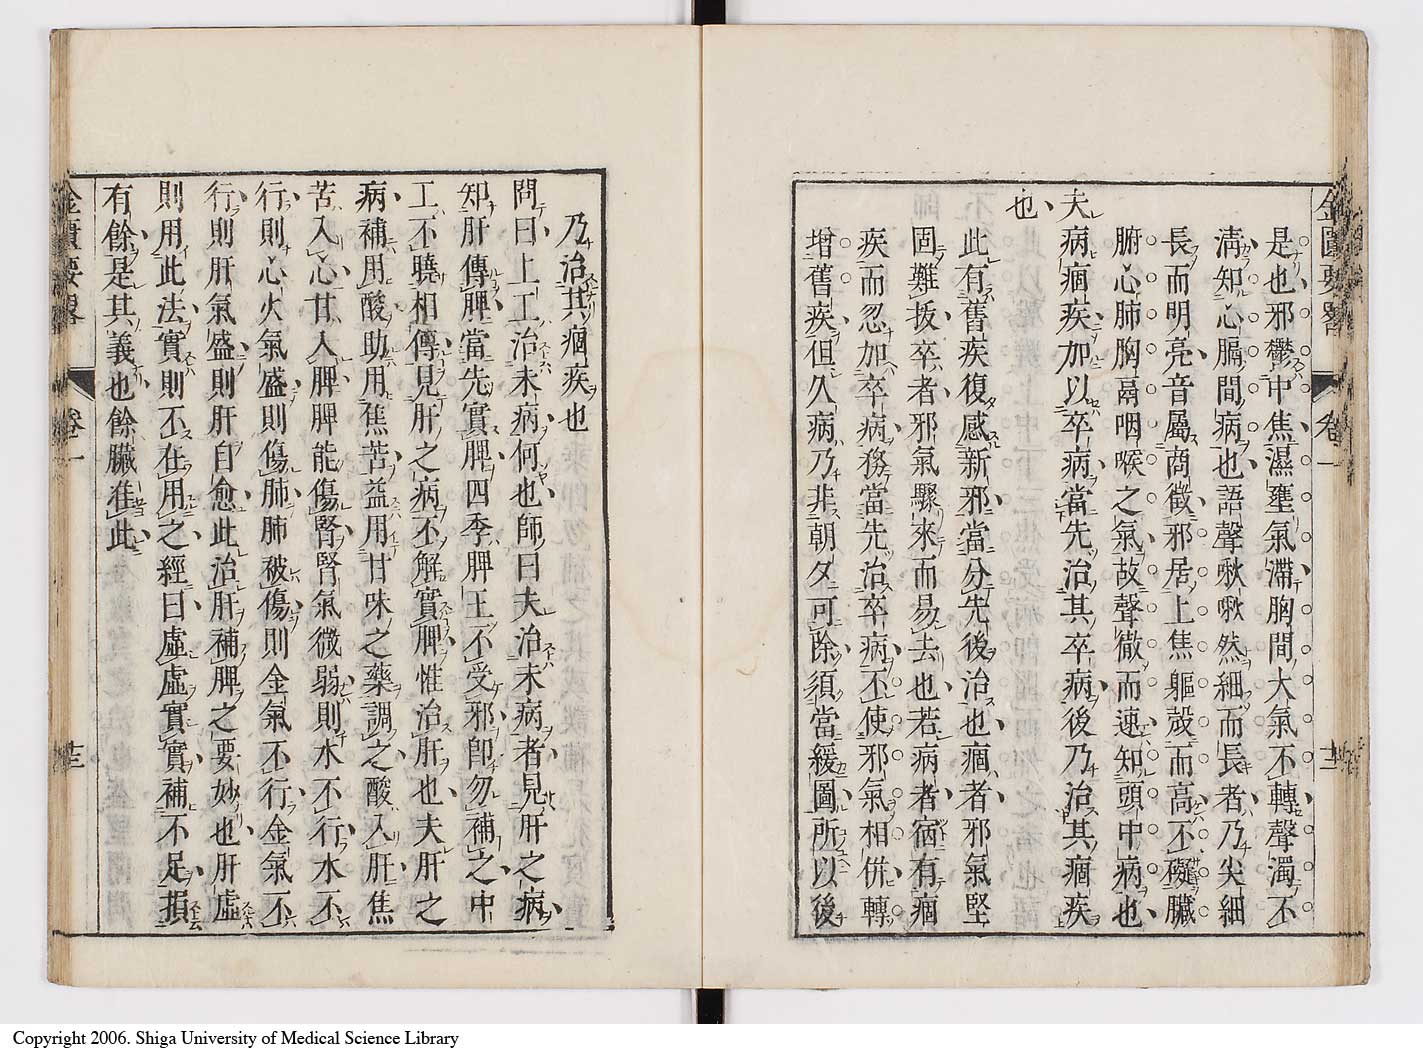 是也邪鬱中焦濕壅氣滯胸間大氣不轉聲濁不
淸知心膈間病也語聲啾啾然細而長者乃尖細
長而明亮音屬商徵邪居上焦軀殼而高不礙臟
腑心肺胸鬲咽喉之氣故聲徹而速知頭中病也
夫病痼疾加以卒病當先治其卒病後乃治其痼疾
也
此有舊疾復感新邪當分先後治也痼者邪氣堅
固難拔卒者邪氣驟來而易去也若病者宿有痼
疾而忽加卒病務當先治卒病不使邪氣相併轉
增舊疾但久病乃非朝夕可除須當緩圖所以後
乃治其痼疾也
問曰上工治未病何也師曰夫治未病者見肝之病
知肝傳脾當先實脾四季脾王不受邪卽勿補之中
工不曉相傳見肝之病不解實脾惟治肝也夫肝之
病補用酸助用焦苦益用甘味之藥調之酸入肝焦
苦入心甘入脾脾能傷腎腎氣微弱則水不行水不
行則心火氣盛則傷肺肺被傷則金氣不行金氣不
行則肝氣盛則肝自愈此治肝補脾之要妙也肝虛
則用此法實則不在用之經曰虛虛實實補不足損
有餘是其義也餘臟准此
金匱要畧
卷一
十三
Copyright 2006. Shiga University of Medical Science Library